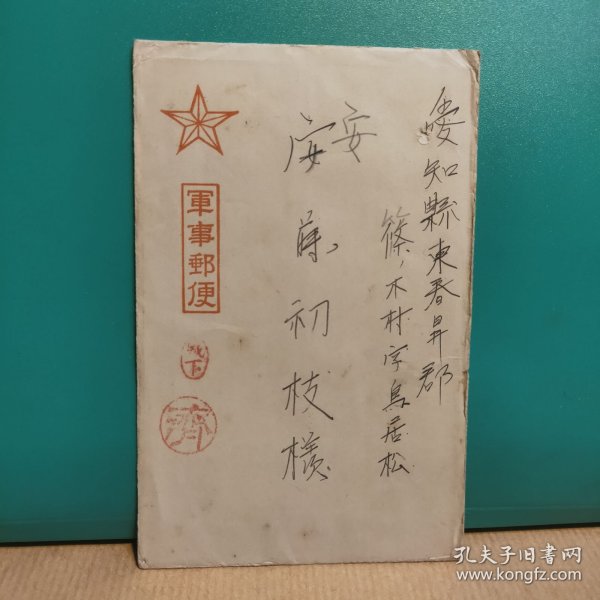 愛知縣東春日井郡
篠ノ木村字鳥居松
安
安藤初枝様
軍事郵便
下
濟
孔夫子旧书网
www.kongfz.com